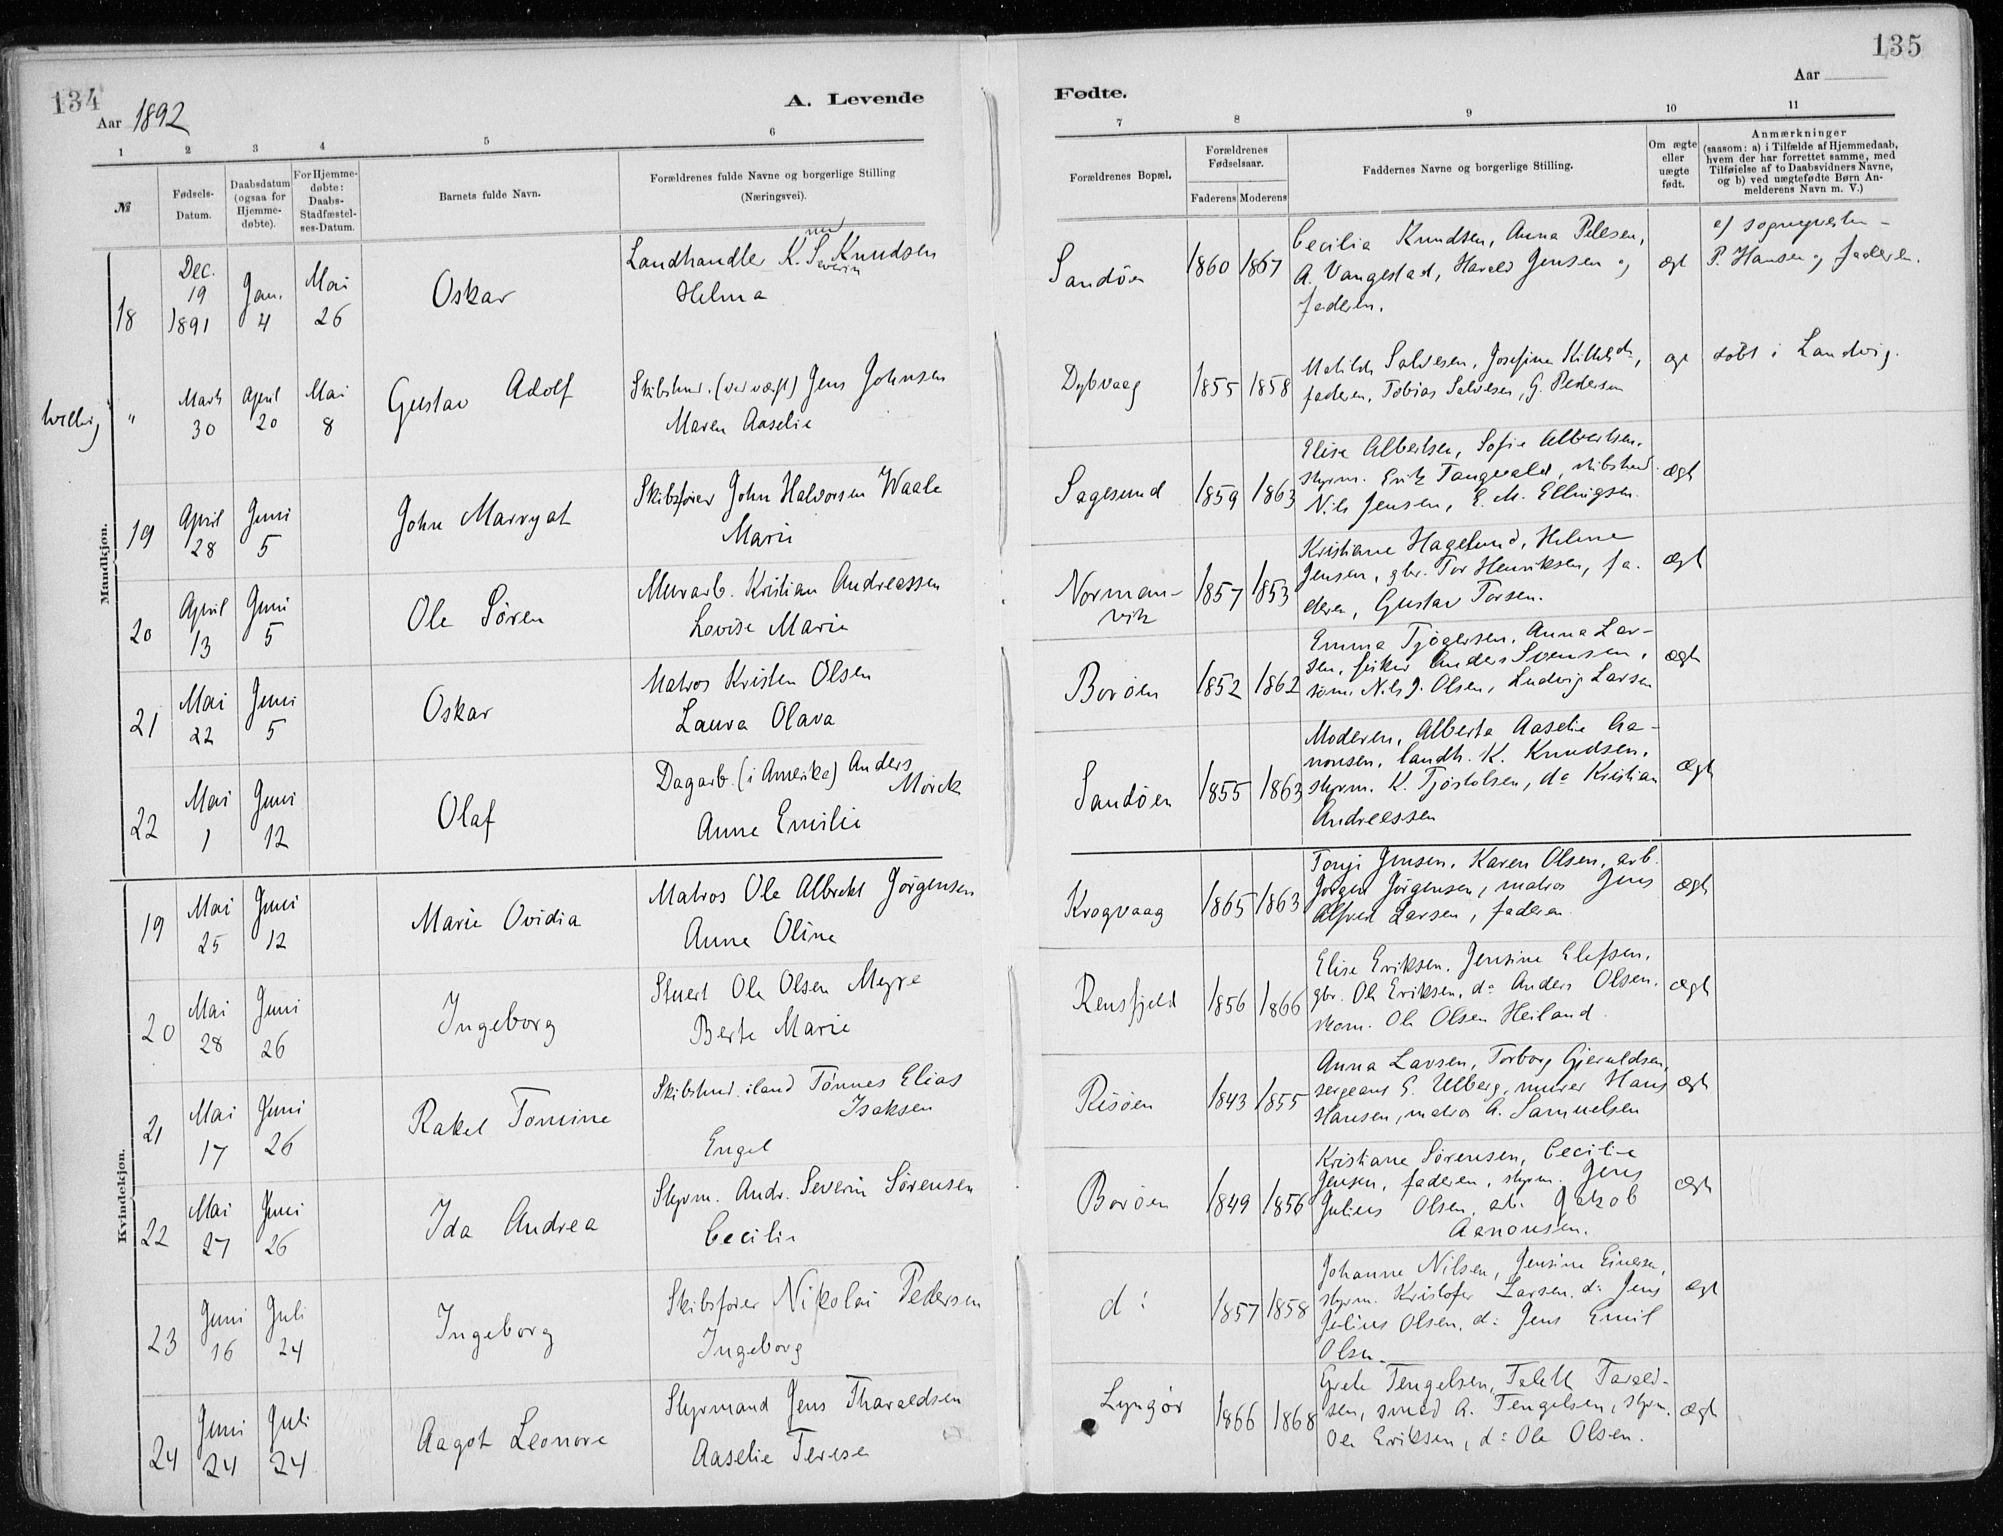 134
Aar 1892
A. Levende
1 2 3 4 5 6
№
Fødsels-Datum.
Daabsdatum (ogsaa for Hjemme-døbte).
For Hjemme-døbte: Daabs-Stadfæstel-ses-Datum.
Barnets fulde Navn.
Forældrenes fulde Navne og borgerlige Stilling (Næringsvei).
Mandkjøn.
18 Dec. 19 1891 Jan. 4 Mai 26 Oskar Landhandler K. Severin Knudsen
Helma
" Marts 30 April 20 Mai 8 Gustav Adolf Skibstmr. Jens Johnsen
Maren Aaselie
19 April 28 Juni 5 John Marryat Skibsfører John Halvorsen Waale
Marie
20 April 13 Juni 5 Ole Søren Murarb. Kristian Andreassen
Lovise Marie
21 Mai 22 Juni 5 Oskar Matros Kristen Olsen
Laura Olava
22 Mai 1 Juni 12 Olaf Dagarb. (i Amerika) Anders Mørck
Anne Emilie
Kvindekjøn.
19 Mai 25 Juni 12 Marie Ovidia Matros Ole Albrekt Jørgensen
Anne Oline
20 Mai 28 Juni 26 Ingeborg Stuert Ole Olsen Myre
Berte Marie
21 Mai 17 Juni 26 Rakel Tomine Skibstmd. iland Tønnes Elias Isaksen
Engel
22 Mai 27 Juni 26 Ida Andrea Styrm. Andr. Severin Sørensen
Cecilie
23 Juni 16 Juli 24 Ingeborg Skibsfører Nikolai Pedersen
Ingeborg
24 Juni 24 Juli 24 Aagot Leonore Styrmand Jens Tharaldsen
Aaselie Terese
135
Fødte.
Aar
7 8 9 10 11
Forældrenes Bopæl.
Forældrenes Fødselsaar.
Faderens Moderens
Faddernes Navne og borgerlige Stilling.
Om ægte eller uægte født.
Anmærkninger
(saasom: a) i Tilfælde af Hjemmedaab,
hvem der har forrettet samme, med
Tilføielse af to Daabsvidners Navne,
og b) ved uægtefødte Børn An-
melderens Navn m. V.)
Sandøen 1860 1867 Cecilia Knudsen, Anna Pedersen,
A. Vangestad, Harald Jensen og
faderen.
ægt
P. Hansen og faderen.
Dybvaag 1855 1858 Matilde Salvesen, Josefine
faderen, Tobias Salvesen, G. Pedersen
ægt døbt i Landvig.
Sagesund 1859 1863 Elise Albertsen, Sofie Albertsen,
styrm. Erik Tangvald, skibstmd.
Nils Jensen, E. M. Ellingsen.
ægt
Normanvik 1857 1853 Kristiane Hagelund, Helene
Jensen, gbr. Tor Henriksen, fa-
deren, Gustav Torsen.
ægt
Borøen 1852 1862 Emma Tjøgersen, Anna Lar-
sen, fisker Anders Svensen,
søm. Nils J. Olsen, Ludvig Larsen
ægt
Sandøen 1855 1863 Moderen, Alberta Aaselie Aa-
nonsen, landh. K. Knudsen,
styrm. K. Tjøstolsen, do Kristian
Andreassen
ægt
Krogvaag 1865 1863 Tonji Jensen, Karen Olsen, arb.
Jørgen Jørgensen, matros Jens
Alfred Larsen, faderen.
ægt
Rensfjeld 1856 1866 Elise Eriksen, Jensine Elefsen,
gbr. Ole Eriksen, do Anders Olsen,
skom. Ole Olsen Heiland.
ægt
Risøen 1843 1855 Anna Larsen, Torborg Gjeruldsen,
sergeant G. Ulberg, murer Hans
Hansen, matros A. Samuelsen
ægt
Borøen 1849 1856 Kristiane Sørensen, Cecilie
Jensen, faderen, styrm. Jens
Julius Olsen, arb. Jakob
Aanonsen.
ægt
do 1857 1858 Johanne Nilsen, Jensine Einersen,
styrm. Kristofer Larsen, do Jens
Julius Olsen, do Jens Emil
Olsen.
ægt
Lyngør 1866 1868 Grete Tengelsen, Talette Tarald-
sen, smed A. Tengelsen, styrm.
Ole Eriksen, do Ole Olsen.
ægt